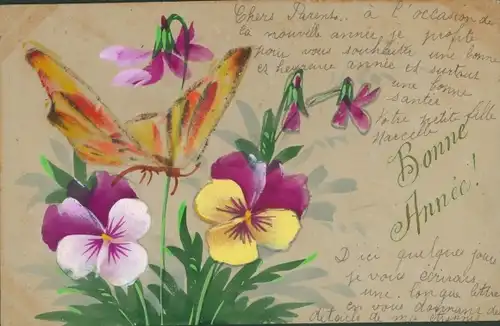 Chers Parents.. à l'occasion de
la nouvelle année, je profite
pour vous souhaiter une bonne
et heureuse année et surtout
une bonne
santée
Votre petit fille
Marcelle
Bonne
Année!
D'ici quelque jour
je vous écrirais
une longue lettre
en vous donnant du
détails de ma